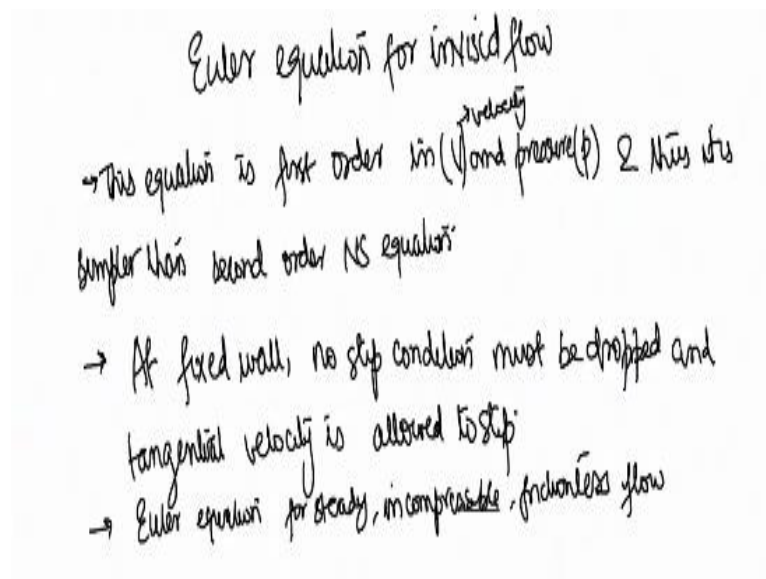 Euler equation for inviscid flow
→ velocity
→ This equation is first order in (V) and pressure (p) & thus its
simpler than second order NS equation
→ At fixed wall, no slip condition must be dropped and
tangential velocity is allowed to slip
→ Euler equation for steady, incompressible, frictionless flow